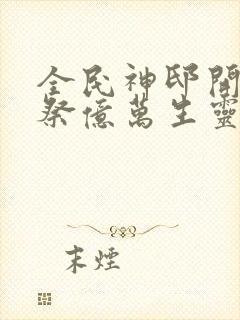 全民神邸開
祭億萬生靈
末煙